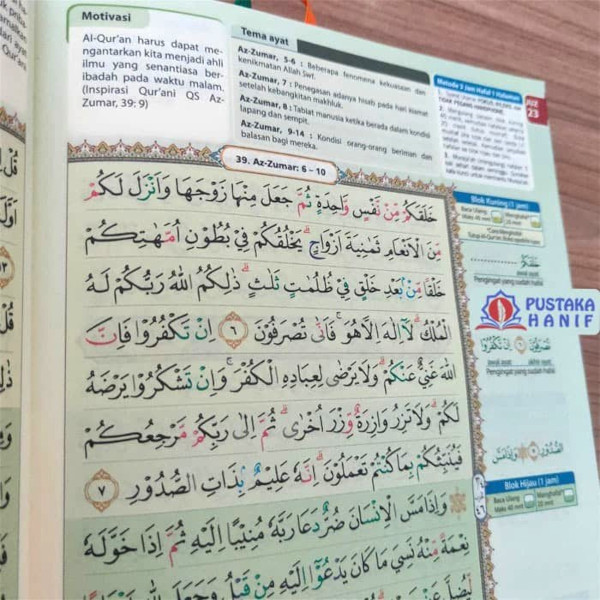 Motivasi
Al-Qur'an harus dapat me-
ngantarkan kita menjadi ahli
ilmu yang senantiasa ber-
ibadah pada waktu malam.
(Inspirasi Qur'ani QS Az-
Zumar, 39: 9)
Tema ayat
Az-Zumar, 5-6 : Beberapa fenomena kekuasaan dan
kenikmatan Allah Swt.
Az-Zumar, 7 : Penegasan adanya hisab pada hari kiamat
setelah kebangkitan makhluk.
Az-Zumar, 8 : Tabiat manusia ketika berada dalam kondisi
lapang dan sempit.
Az-Zumar, 9-14 : Kondisi orang-orang beriman dan
balasan bagi mereka.
Metode 5 Jam Hafal 1 Halaman
JUZ
23
39. Az-Zumar: 6 – 10
خَلَقَكُمْ مِّنْ نَّفْسٍ وَّاحِدَةٍ ثُمَّ جَعَلَ مِنْهَا زَوْجَهَا وَاَنْزَلَ لَكُمْ
مِّنَ الْاَنْعَامِ ثَمٰنِيَةَ اَزْوَاجٍ ۗ يَخْلُقُكُمْ فِيْ بُطُوْنِ اُمَّهٰتِكُمْ
خَلْقًا مِّنْۢ بَعْدِ خَلْقٍ فِيْ ظُلُمٰتٍ ثَلٰثٍ ۗ ذٰلِكُمُ اللّٰهُ رَبُّكُمْ لَهُ
الْمُلْكُ ۗ لَآ اِلٰهَ اِلَّا هُوَ ۚ فَاَنّٰى تُصْرَفُوْنَ ٦ اِنْ تَكْفُرُوْا فَاِنَّ
اللّٰهَ غَنِيٌّ عَنْكُمْ ۗ وَلَا يَرْضٰى لِعِبَادِهِ الْكُفْرَ ۚ وَاِنْ تَشْكُرُوْا يَرْضَهُ
لَكُمْ ۗ وَلَا تَزِرُ وَازِرَةٌ وِّزْرَ اُخْرٰى ۗ ثُمَّ اِلٰى رَبِّكُمْ مَّرْجِعُكُمْ
فَيُنَبِّئُكُمْ بِمَا كُنْتُمْ تَعْمَلُوْنَ ۗ اِنَّهٗ عَلِيْمٌۢ بِذَاتِ الصُّدُوْرِ ٧
وَاِذَا مَسَّ الْاِنْسَانَ ضُرٌّ دَعَا رَبَّهٗ مُنِيْبًا اِلَيْهِ ثُمَّ اِذَا خَوَّلَهٗ
نِعْمَةً مِّنْهُ نَسِيَ مَا كَانَ يَدْعُوْٓا اِلَيْهِ مِنْ قَبْلُ وَجَعَلَ لِلّٰهِ
Blok Kuning (1 jam)
Baca Ulang
Maks 40 mnt
Menghafal
20 mnt
خَلَقَكُمْ
awal ayat
Pengingat yang sudah hafal
PUSTAKA
HANIF
تُصْرَفُوْنَ ٦ اِنْ تَكْفُرُوْا
awal ayat
akhir ayat
Pengingat yang sudah hafal
الصُّدُوْرِ ٧ وَاِذَا مَسَّ
Blok Hijau (1 jam)
Baca Ulang
Maks 40 mnt
Menghafal
20 mnt